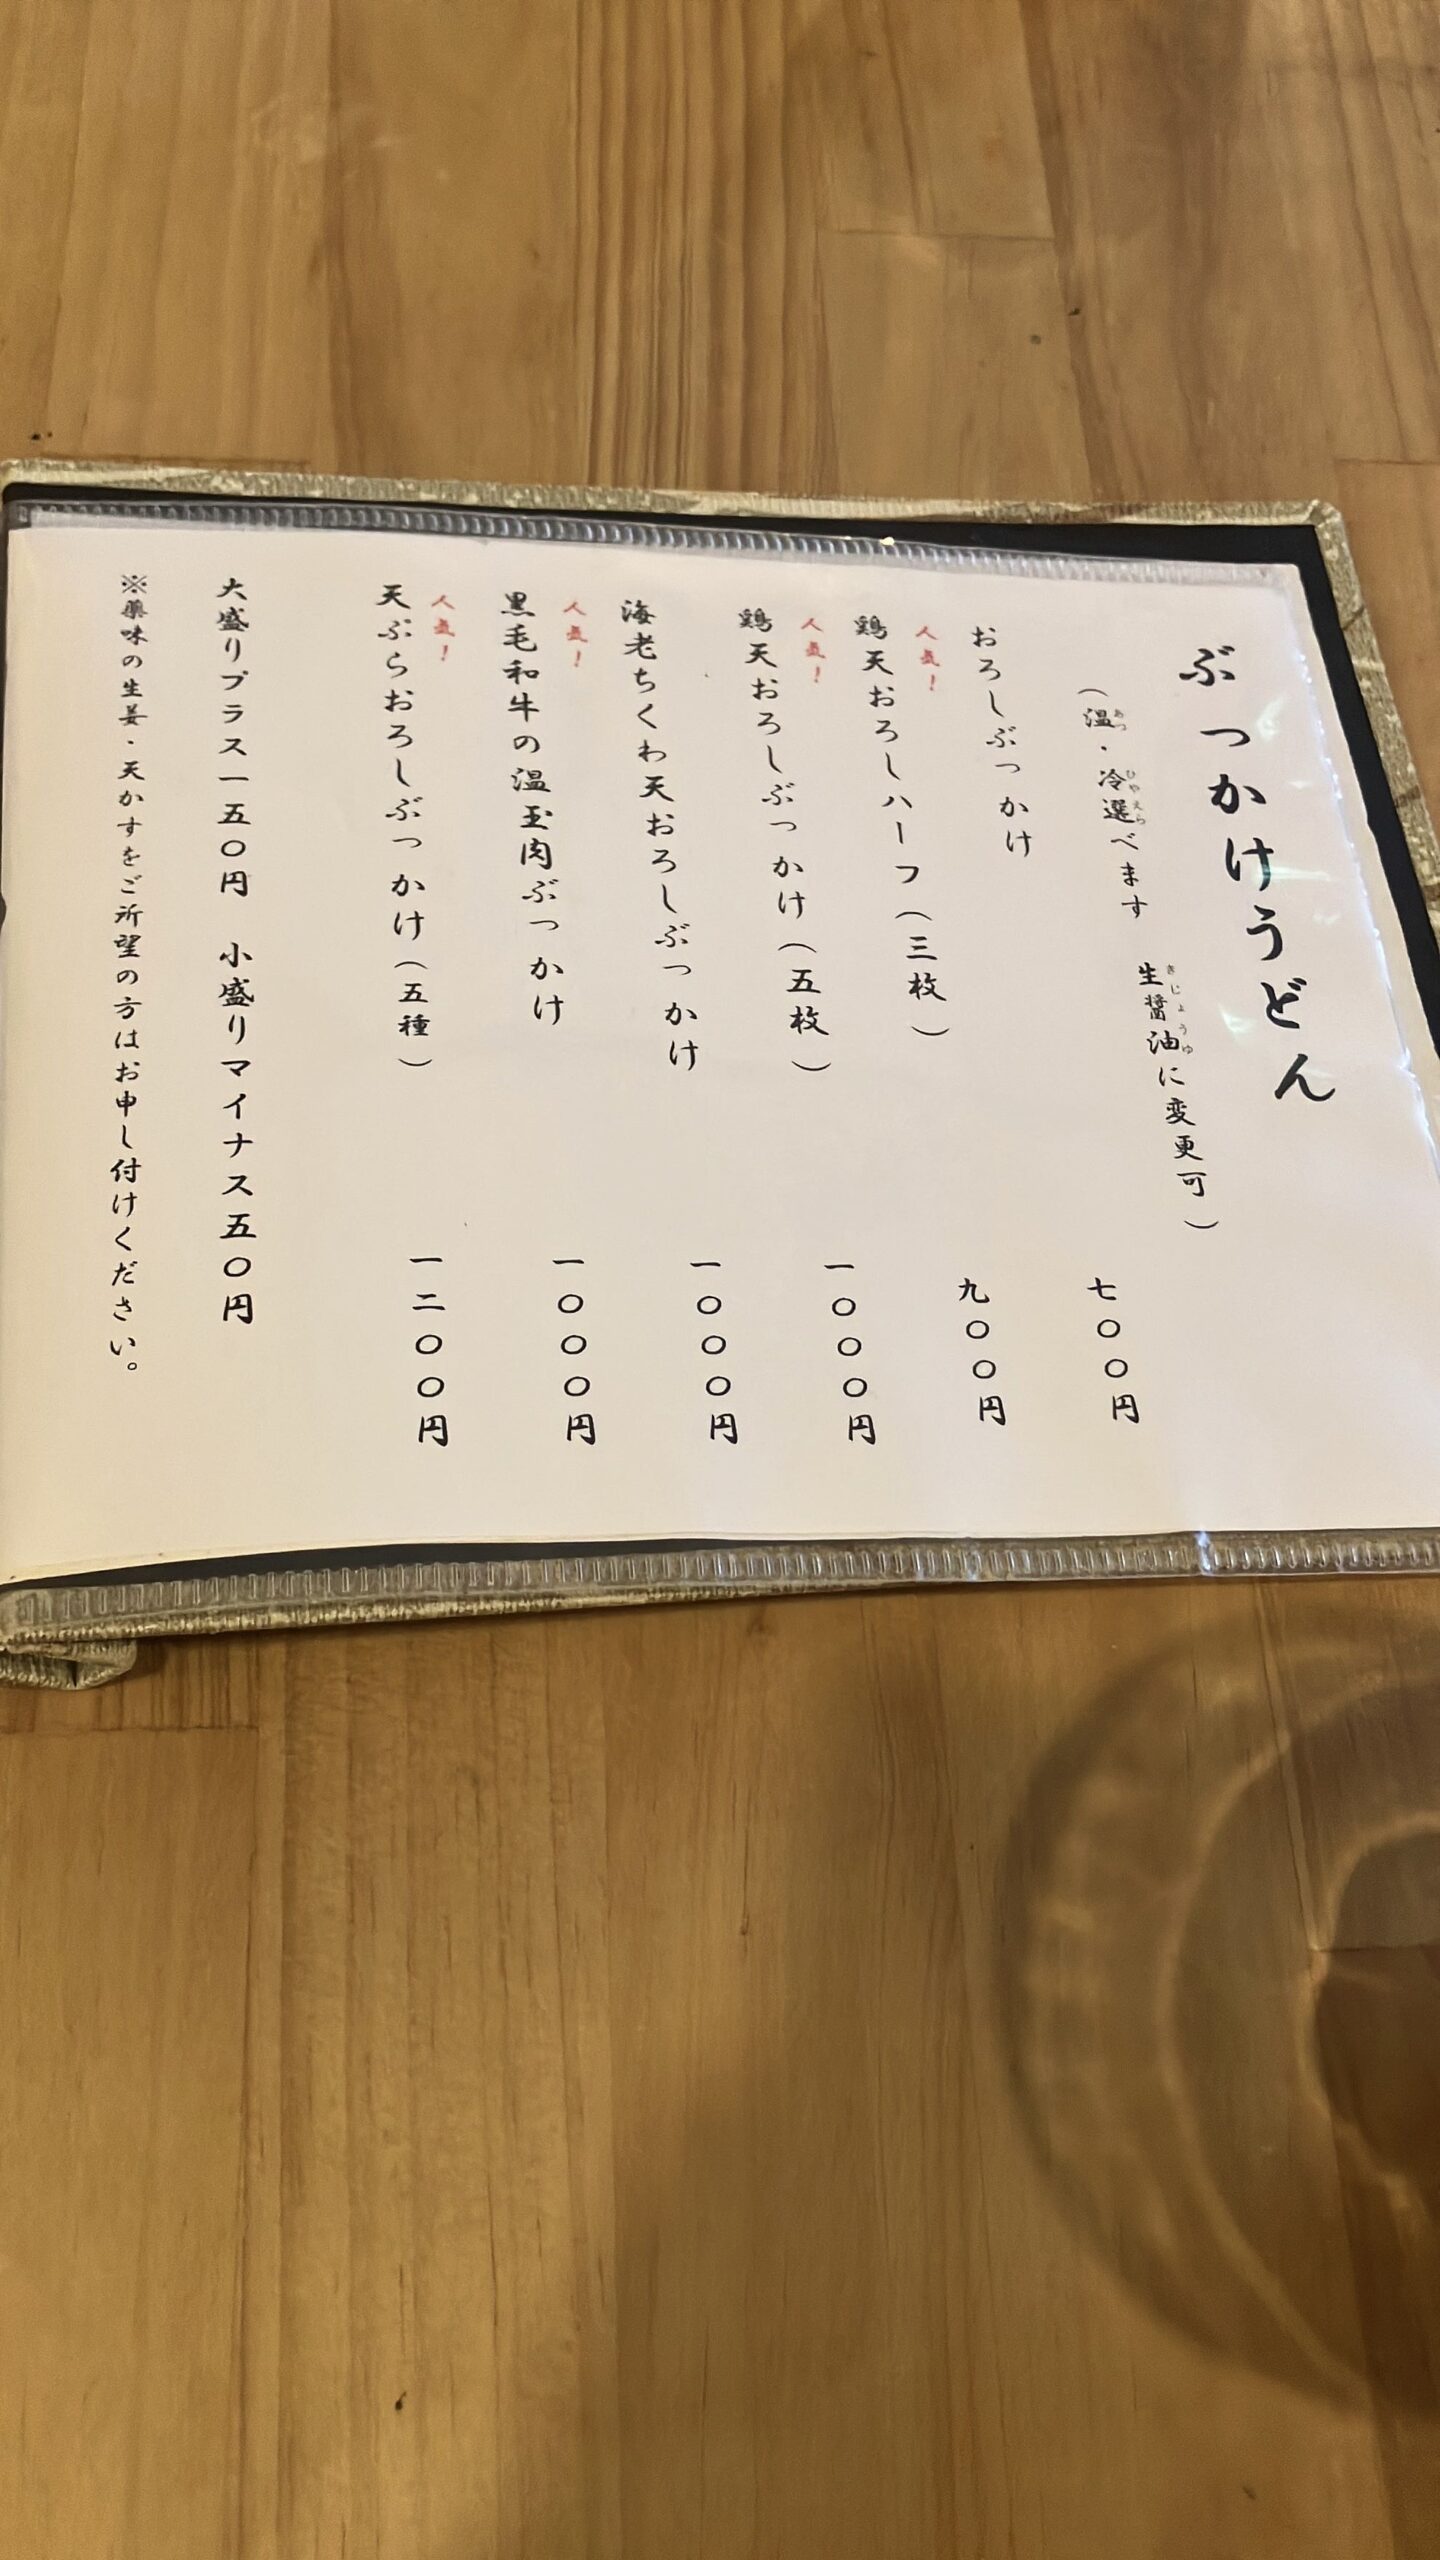 ぶっかけうどん
（温・冷選べます　生醤油に変更可）
あつ
ひやえら
きじょうゆ
おろしぶっかけ　七〇〇円
人気！
鶏天おろしハーフ（三枚）　九〇〇円
人気！
鶏天おろしぶっかけ（五枚）　一〇〇〇円
海老ちくわ天おろしぶっかけ　一〇〇〇円
人気！
黒毛和牛の温玉肉ぶっかけ　一〇〇〇円
人気！
天ぷらおろしぶっかけ（五種）　一二〇〇円
大盛りプラス一五〇円　小盛りマイナス五〇円
※薬味の生姜・天かすをご所望の方はお申し付けください。